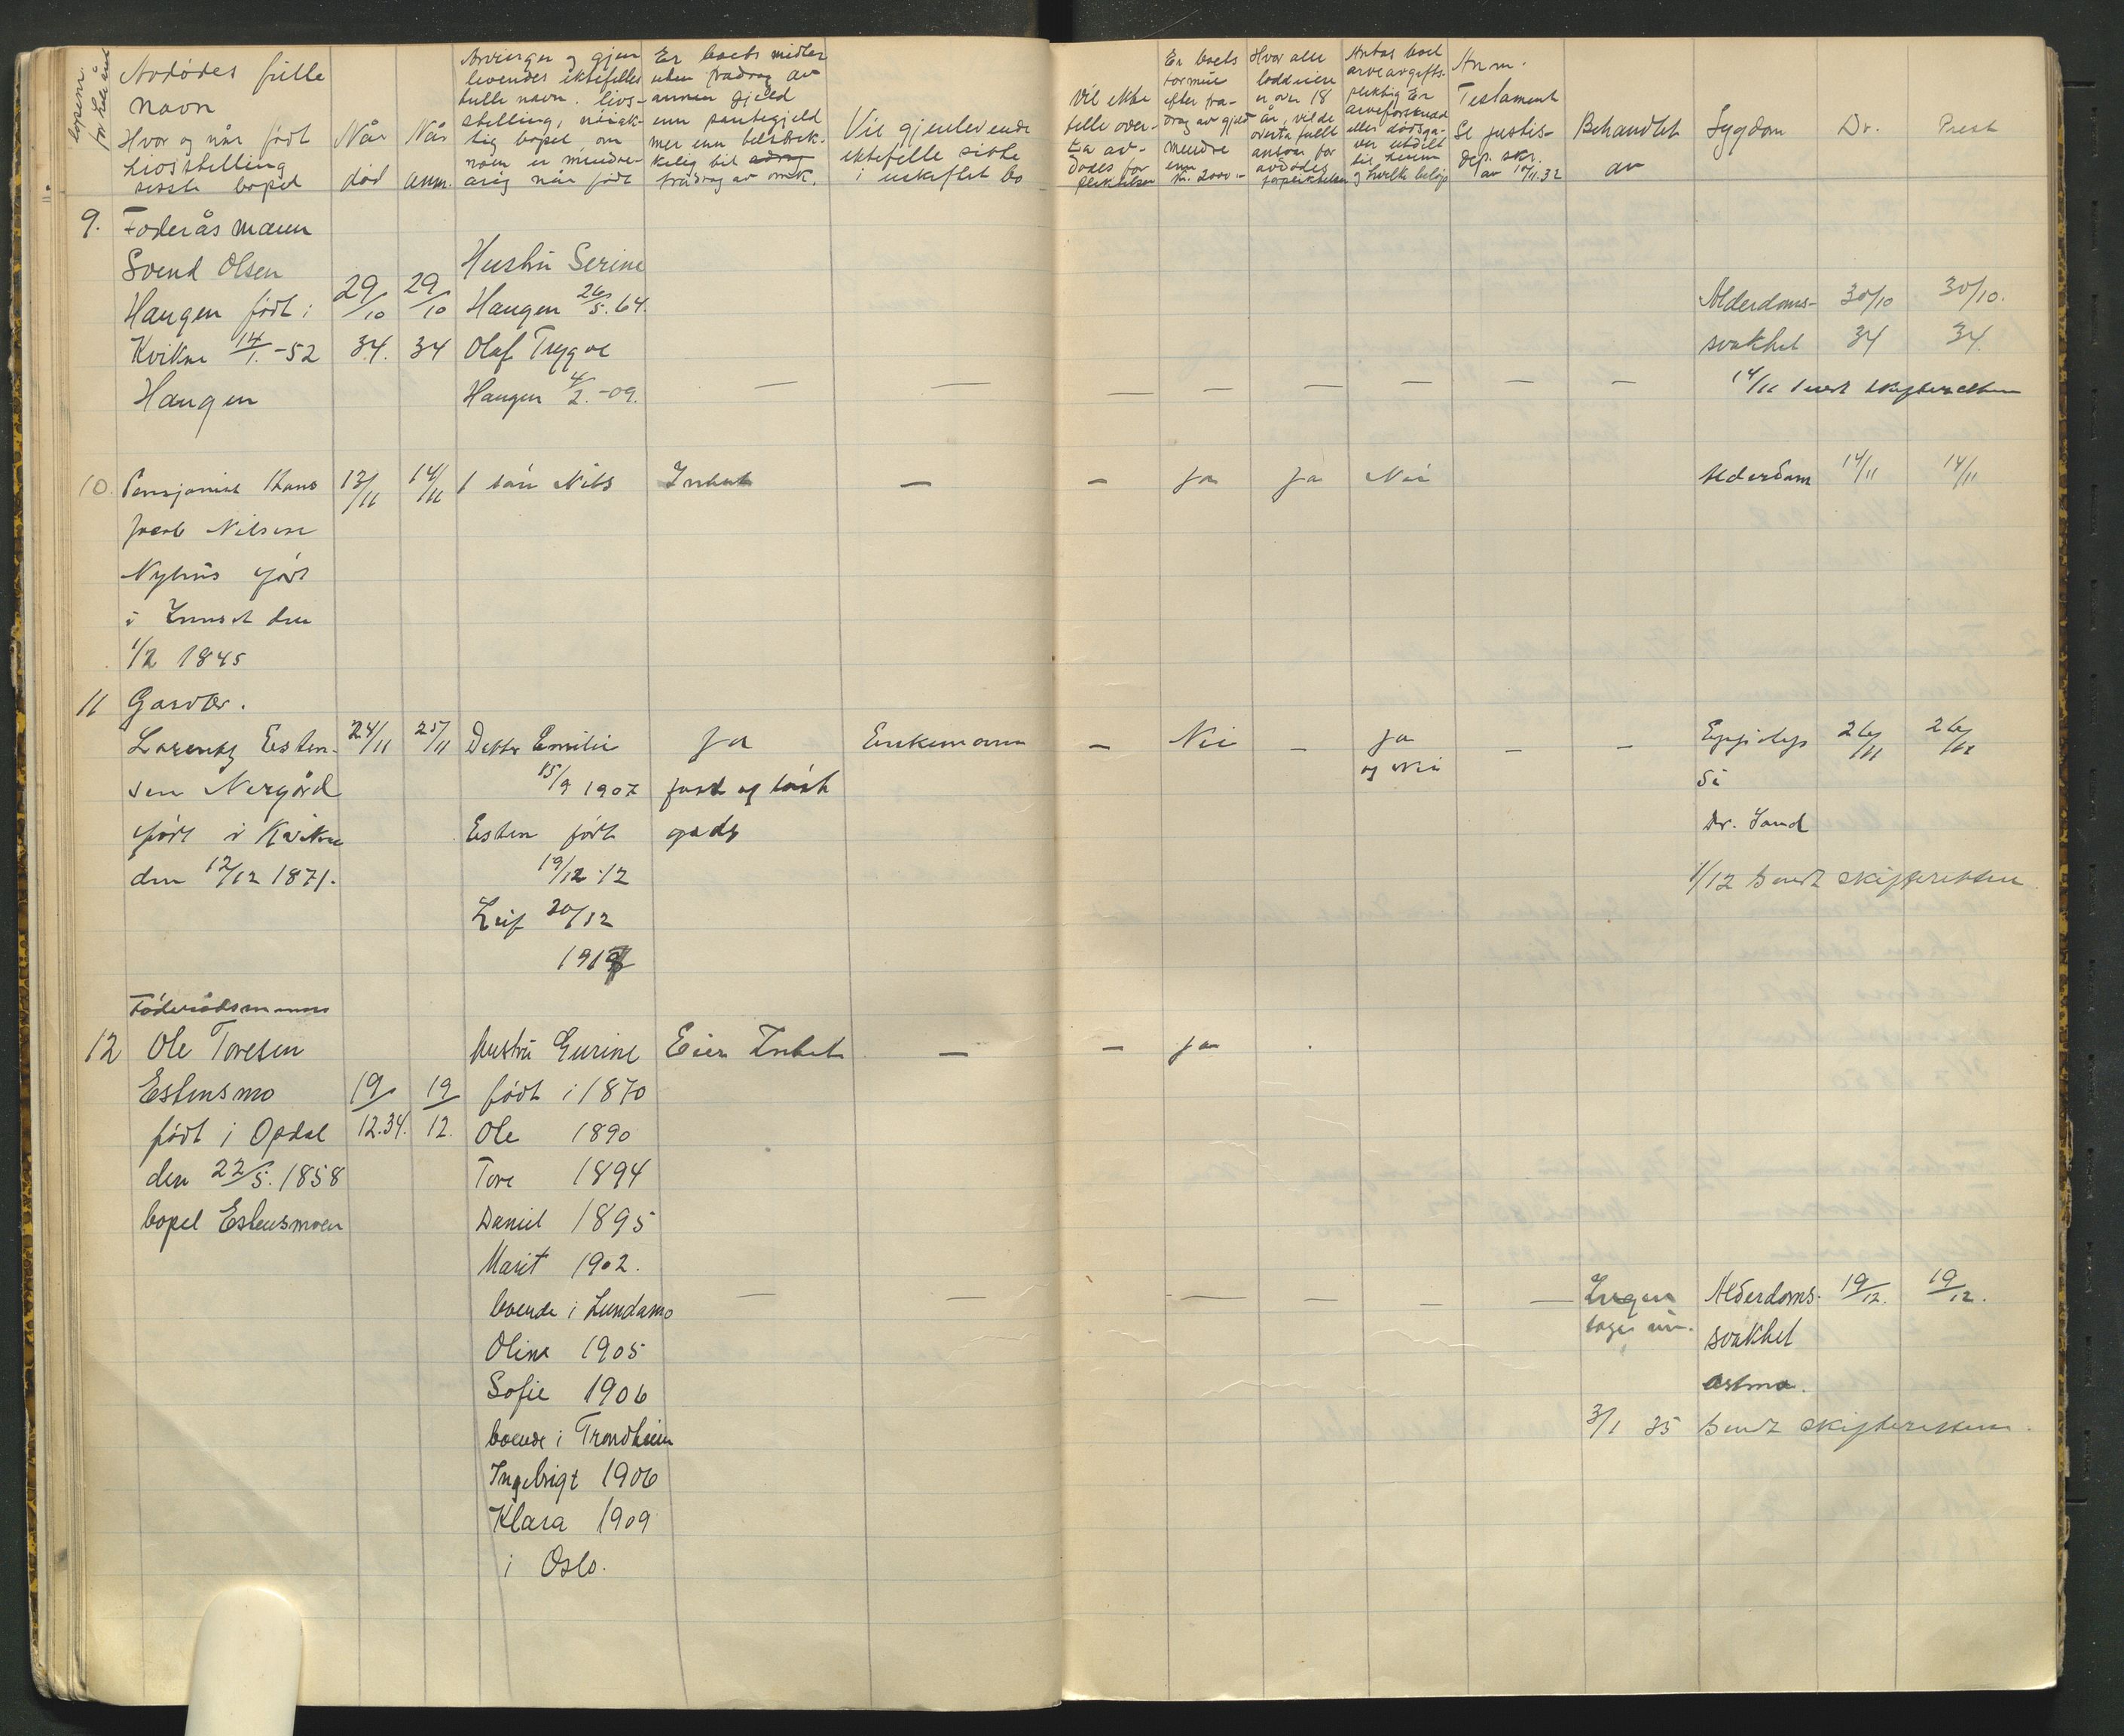 Avdødes fulle
navn
Hvor og når født
Livsstilling
siste bopel
Når
død
Når
anm.
Arvinger og gjen
levendes ektefelles
fulle navn. livs-
stilling, nøiak-
tig bopel, om
noen er mindre-
årig når født
Er boets midler
uten fradrag av
annen gjeld
enn pantegjeld
mer enn tilstrek-
kelig til
fradrag av omk.
Vil gjenlevende
ektefelle sitte
i uskiftet bo
Vil ekte
felle over-
ta av-
dødes for
pliktelser
Er boets
formue
efter fra-
drag av gjeld
mindre
enn
kr. 2000.-
Hvor alle
loddeiere
er over 18
år, vil de
overta fullt
ansvar for
avdødes
forpliktelser
Antas boet
arveavgifts-
pliktig Er
arveforskudd
eller dødsga-
ver utdelt
til hvem
og hvilke beløp
Anm.
Testament
Se justis-
dep. skr.
av 10/11.32
Behandlet
av
Sygdom
Dr.
Prest
9. Foderåsmann
Svend Olsen
Haugen født i
Kvikne 14/1.-52
Haugen
29/10
34.
29/10
34
Hustru Serine
Haugen 26/5.64.
Olaf Trygve
Haugen 4/2.-09.
— — — — — — — —
Alderdoms-
svakhet
30/10
34
30/10.
34
14/11 sendt skifteretten
10. Pensjonist Hans
Nilsen
Nyhus født
i Innset den
1/2 1845
13/11
14/11
1 søn Nils
Intet
—
—
Ja
Ja
Nei
Alderdom
14/11
14/11
11 Garver.
Lorentz Esten-
sen Nergård
født i Kvikne
den 12/12 1871.
24/11
25/11
Dotter Emilie
15/9 1907
Esten født
19/12.12
Leif 20/12
Ja
fast og løst
gods
Enkemann
—
Nei
—
Ja
og Nei
—
—
26/11
26/11
Dr. Sand
1/12 sendt skifteretten
Føderådsmann
12 Ole Toresen
Estensmo
født i Opdal
den 22/5. 1858
bopel Estensmoen
19/
12.34.
19/
12.
Hustru Gurine
født i 1870
Ole 1890
Tore 1894
Daniel 1895
Marit 1902.
boende i Lundamo
Olina 1905
Sofie 1906
boende i Trondheim
Ingebrigt 1906
Klara 1909
i Oslo.
Eier Intet
—
—
Ja
— — — — — —
Ingen
Alderdoms-
svakhet
astma.
19/12.
19/12.
3/1 35 sendt skifteretten.